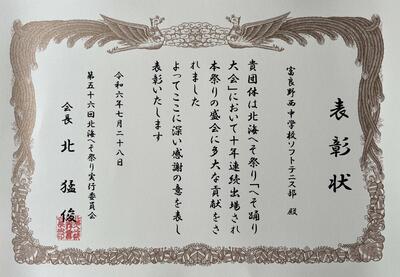 表彰状
富良野西中学校ソフトテニス部 殿
貴団体は北海へそ祭り「へそ踊り
大会」において十年連続出場され
本祭りの盛会に多大な貢献をさ
れました
よってここに深い感謝の意を表し
表彰いたします
令和六年七月二十八日
第五十六回北海へそ祭り実行委員会
会長 北 猛俊